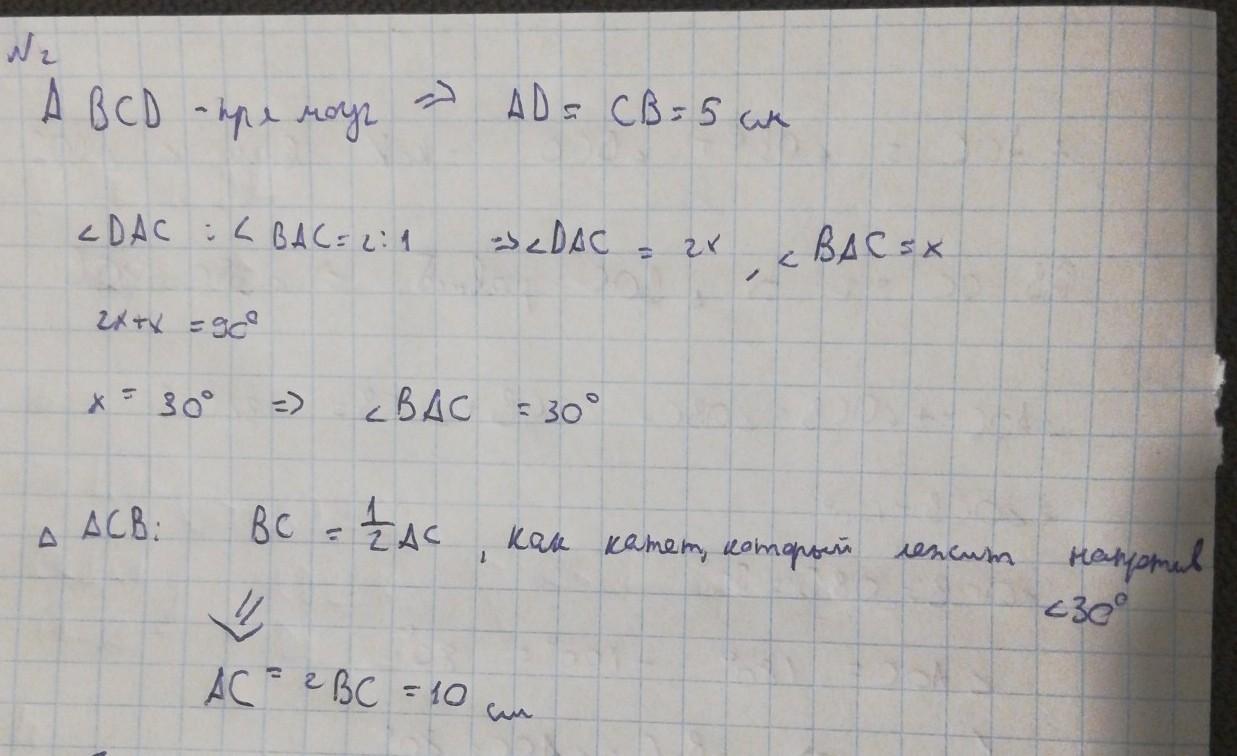 N2
ABCD - прямоуг => AD = CB = 5 см
∠DAC : ∠BAC = 2:1 => ∠DAC = 2x, ∠BAC = x
2x+x = 90°
x = 30° => ∠BAC = 30°
△ ACB: BC = 1/2 AC, как катет, который лежит напротив
∠30°
⇓
AC = 2BC = 10 см